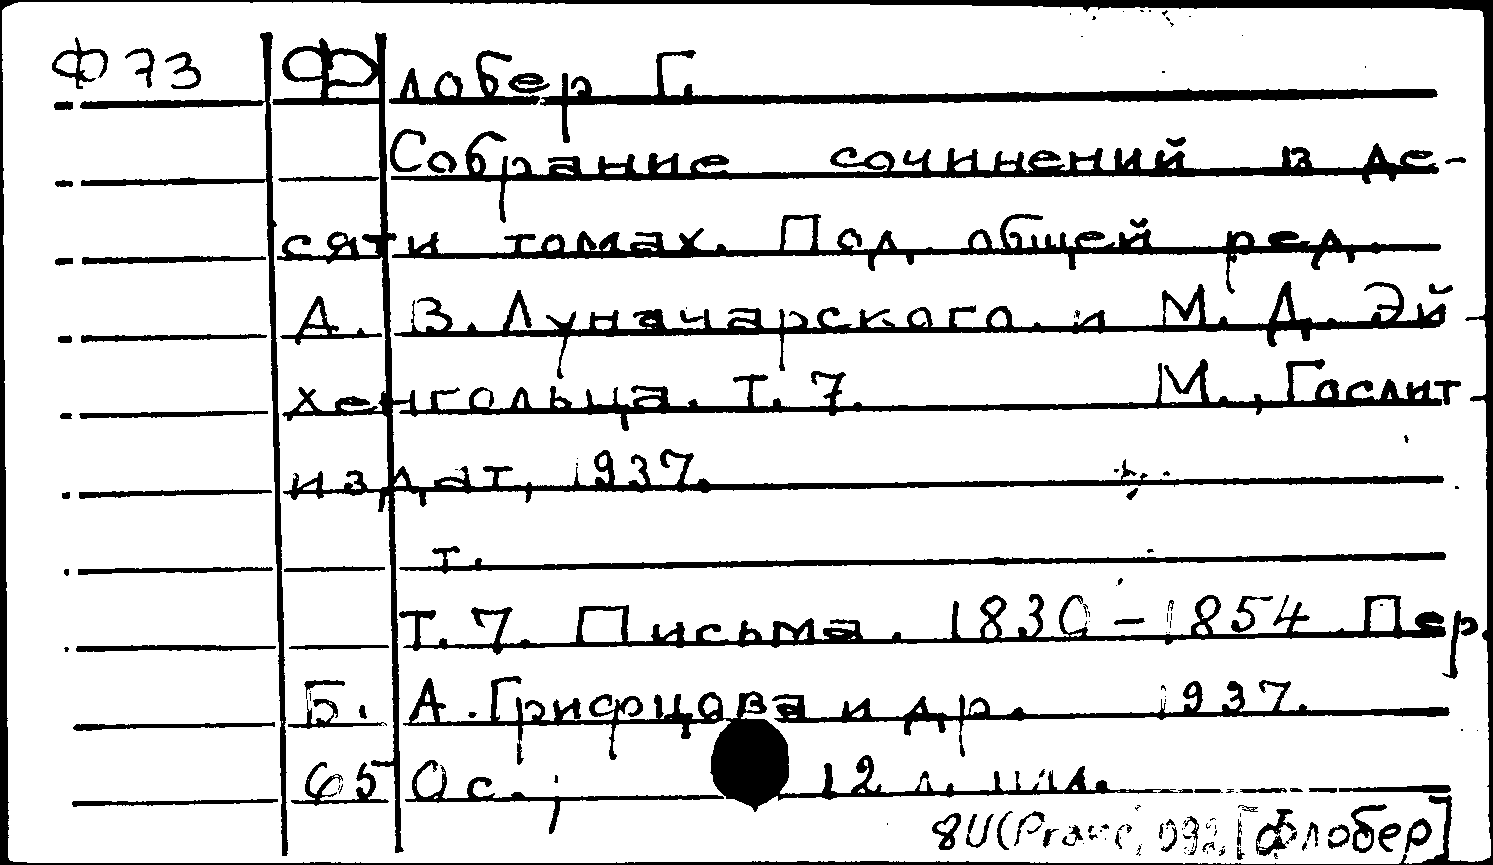 Ф 73 Флобер Г.
Собрание сочинений в де-
сяти томах. Под общей ред.
А. В. Луначарского и М. Д. Эй-
хенгольца. Т. 7. М., Гослит-
издат, 1937.
т.
Т. 7. Письма. 1830 - 1854. Пер.
Б. А. Грифцова и др. 1937.
650 с.; 12 л. илл.
8И( [Флобер]